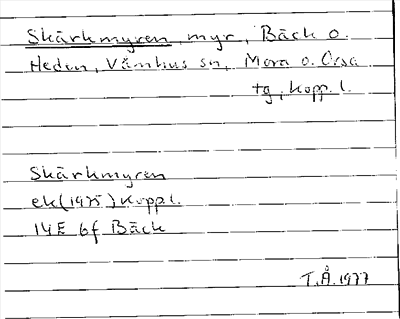 Skärkmyren, myr, Bäck o.
Heden, Våmhus sn, Mora o. Orsa
tg, Kopp. l.
Skärkmyren
ek (1975) Kopp l.
14E 6f Bäck
T.Å. 1977